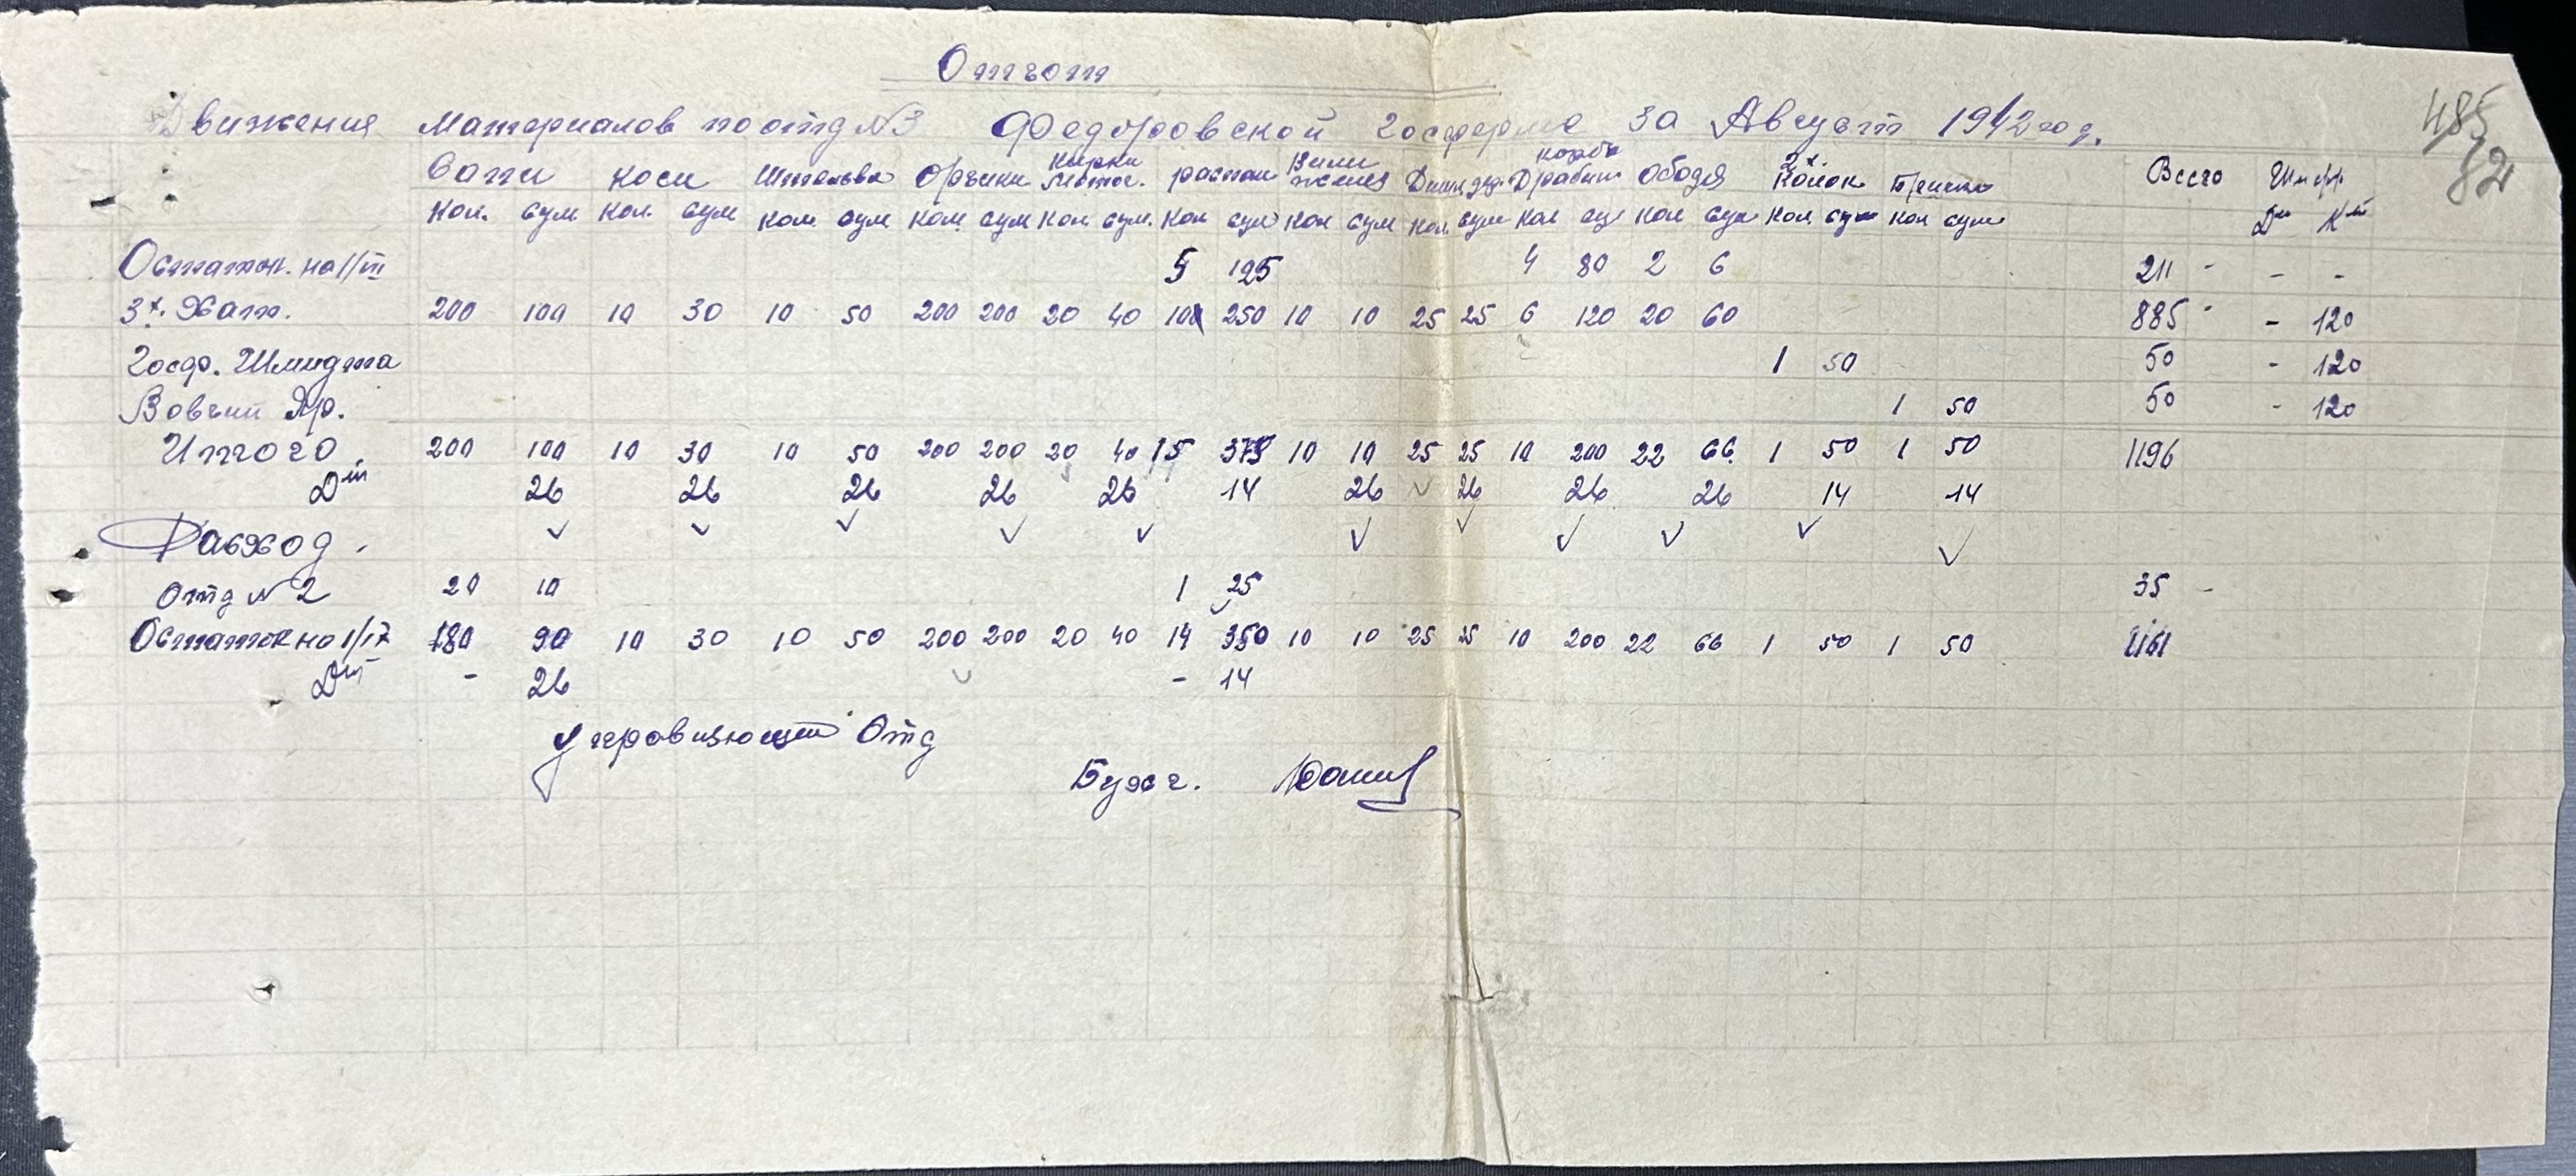 Отчот
Движения материалов по отд №3 Федоровской госферме за Август 1942 год.
485
82
Сапи коси Штельва Орчики Кирки мотог. распаш Вили желез Дишл дер. коробк Драбин ободя 2х Колок Брички Всего Шифр
кол. сум кол. сум кол. сум кол. сум кол. сум. кол сум кол сум кол. сум кол су кол сум кол. сум кол сум Дт Кт
Остаток. на 1/III 5 125 4 80 2 6 211 - - -
3х. Хат. 200 100 10 30 10 50 200 200 20 40 10 250 10 10 25 25 6 120 20 60 885 - - 120
Госф. Шмидта 1 50 50 - 120
Вовчий Яр. 1 50 50 - 120
Итого 200 100 10 30 10 50 200 200 20 40 15 375 10 10 25 25 10 200 22 66. 1 50 1 50 1196
Дт 26 26 26 26 26 14 26 26 26 26 14 14
Расход.
Отд №2 20 10 1 25 35 -
Остаток на 1/IX 180 90 10 30 10 50 200 200 20 40 14 350 10 10 25 25 10 200 22 66 1 50 1 50 1161
Дт - 26 - 14
Управляющий Отд
Бухг.